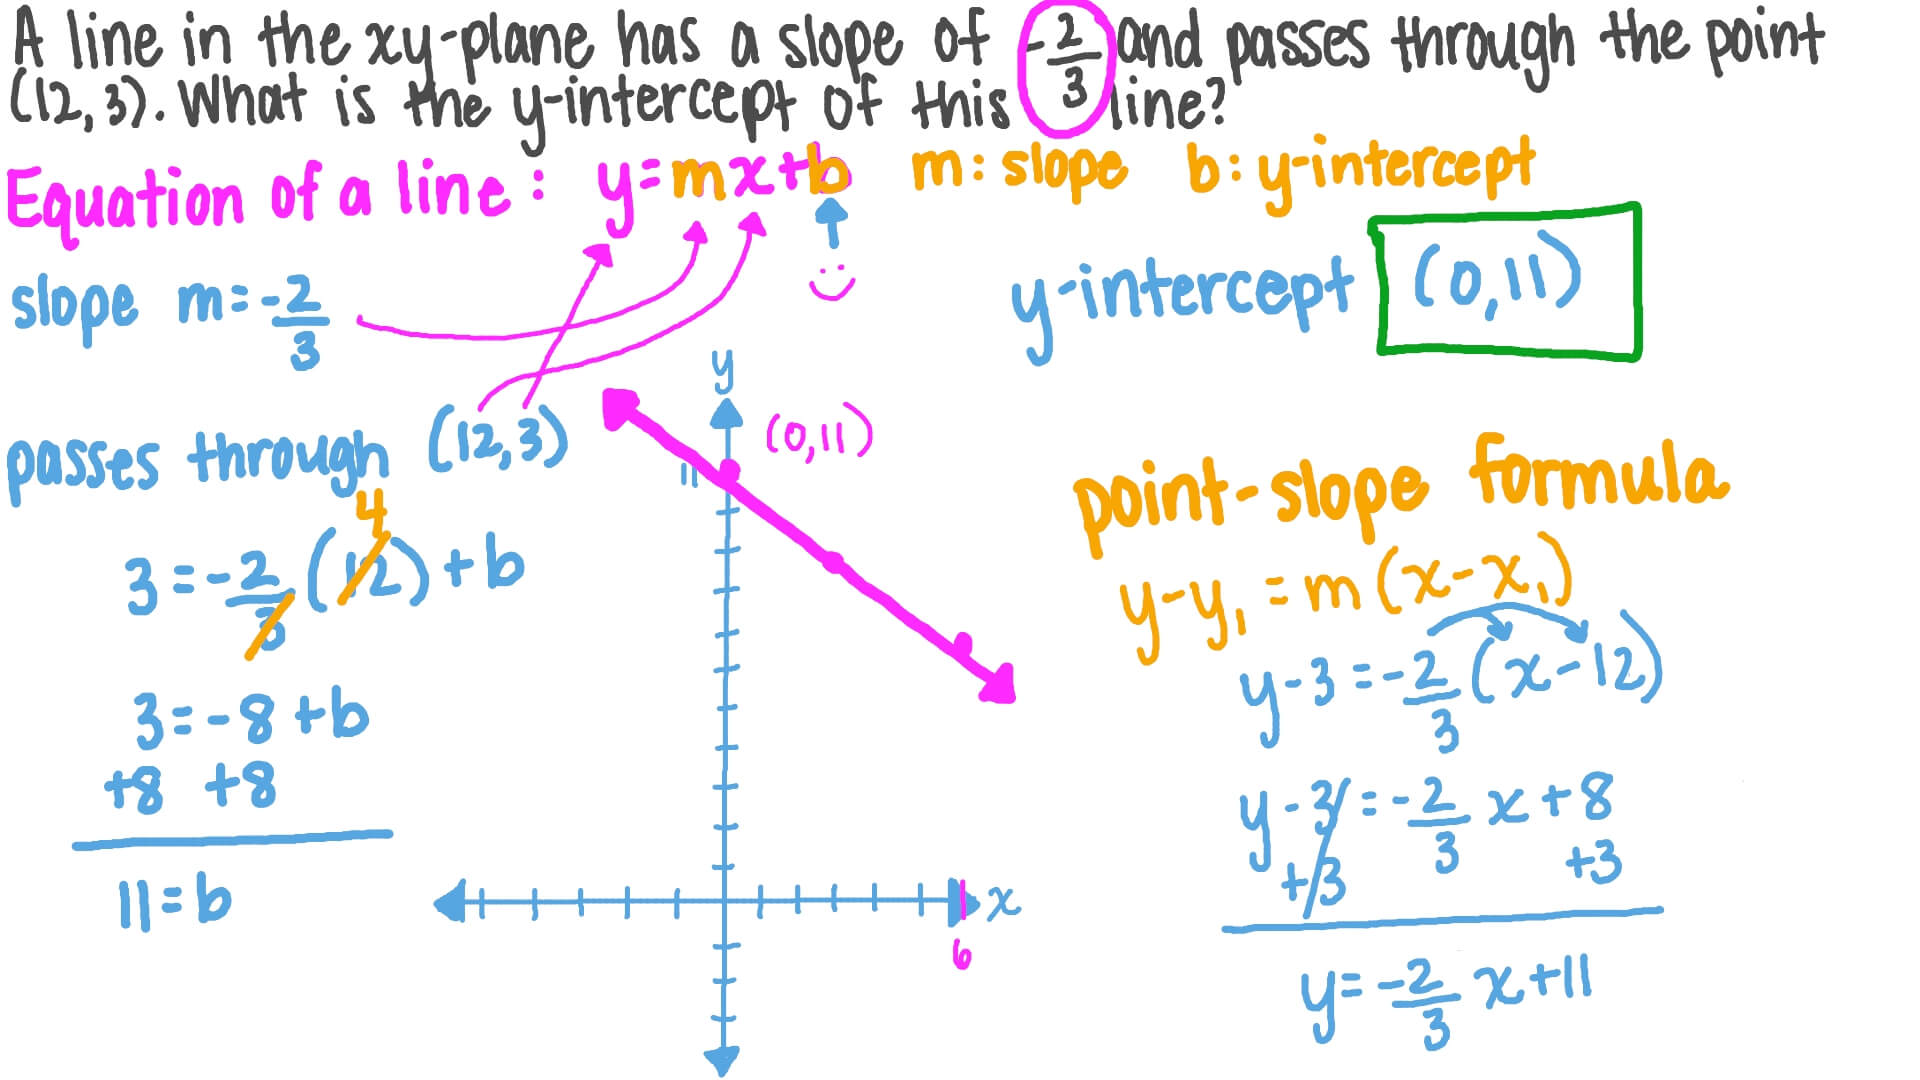 A line in the xy-plane has a slope of -2/3 and passes through the point
(12,3). What is the y-intercept of this line?
Equation of a line: y=mx+b m: slope b: y-intercept
slope m=-2/3
y-intercept (0,11)
passes through (12,3)
4
3=-2/3(12)+b
3=-8+b
+8 +8
11=b
y
(0,11)
11
x
6
point-slope formula
y-y₁=m(x-x₁)
y-3=-2/3(x-12)
y-3=-2/3x+8
+3 +3
y=-2/3x+11